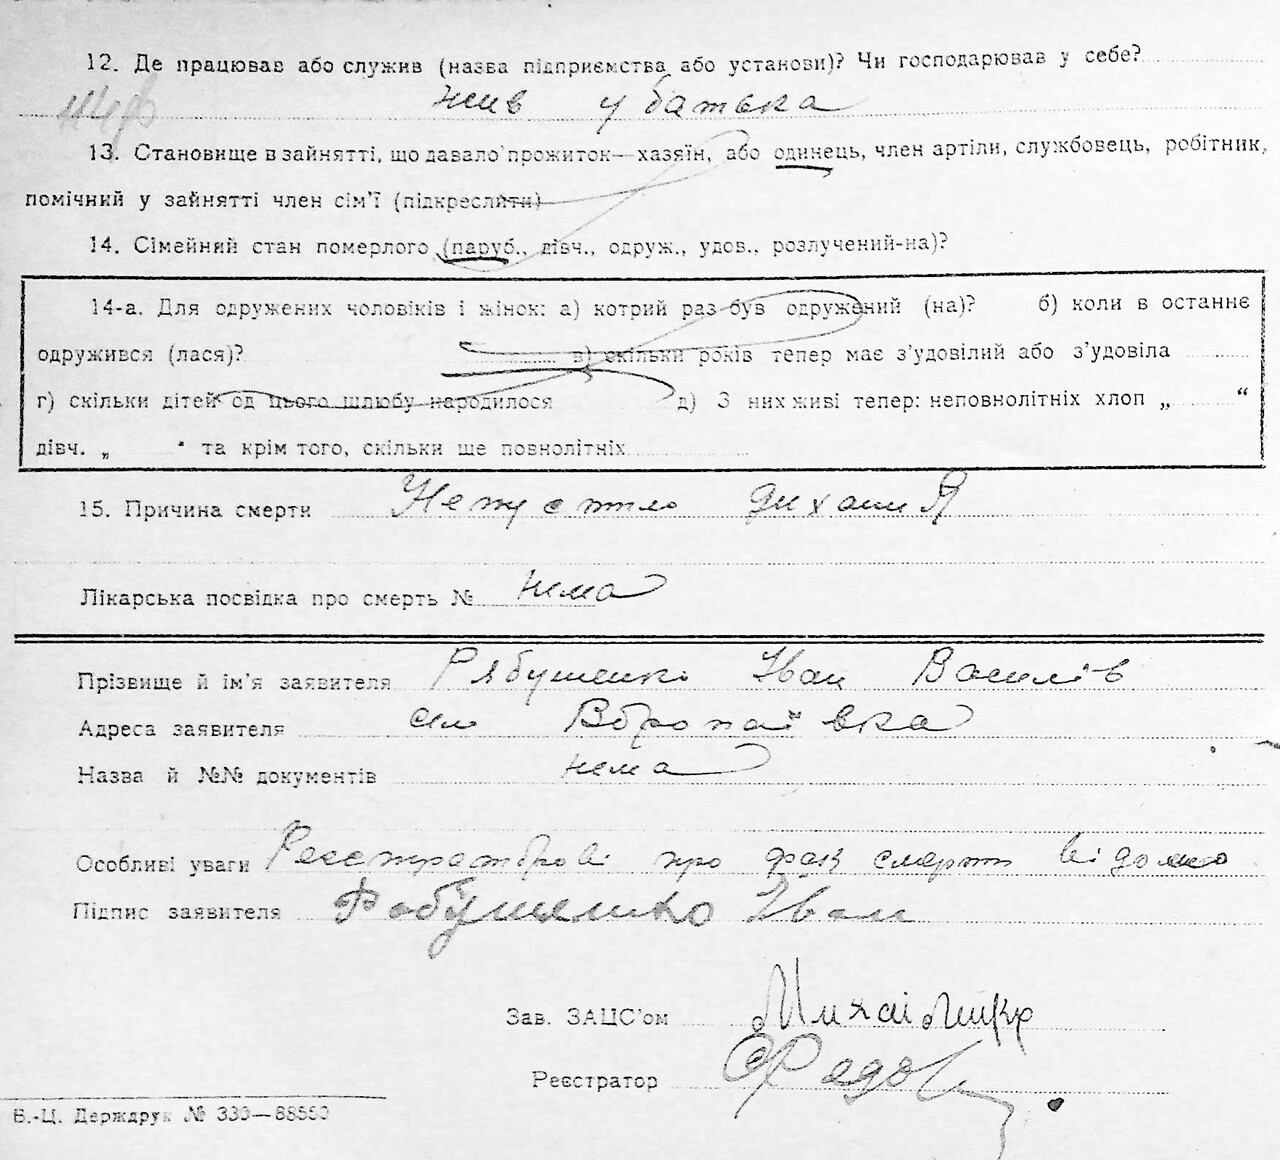 12. Де працював або служив (назва підприємства або установи)? Чи господарював у себе?
жив у батька
13. Становище в зайнятті, що давало прожиток—хазяїн, або одинець, член артіли, службовець, робітник,
помічний у зайнятті член сім'ї (підкреслити)
14. Сімейний стан померлого (паруб., дівч., одруж., удов., розлучений-на)?
14-а. Для одружених чоловіків і жінок: а) котрий раз був одружений (на)? б) коли в останнє
одружився (лася)? в) скільки років тепер має з'удовілий або з'удовіла
г) скільки дітей од цього шлюбу народилося д) З них живі тепер: неповнолітніх хлоп „ “
дівч. „ “ та крім того, скільки ще повнолітніх
15. Причина смерти
Лікарська посвідка про смерть № нема
Прізвище й ім'я заявителя Рябушенко Іван Василів
Адреса заявителя
Назва й №№ документів нема
Особливі уваги Реєстраторові про факт смерти відомо
Підпис заявителя Рабушенко Іван
Зав. ЗАЦС'ом
Реєстратор
В.-Ц. Держдрук № 330—88550